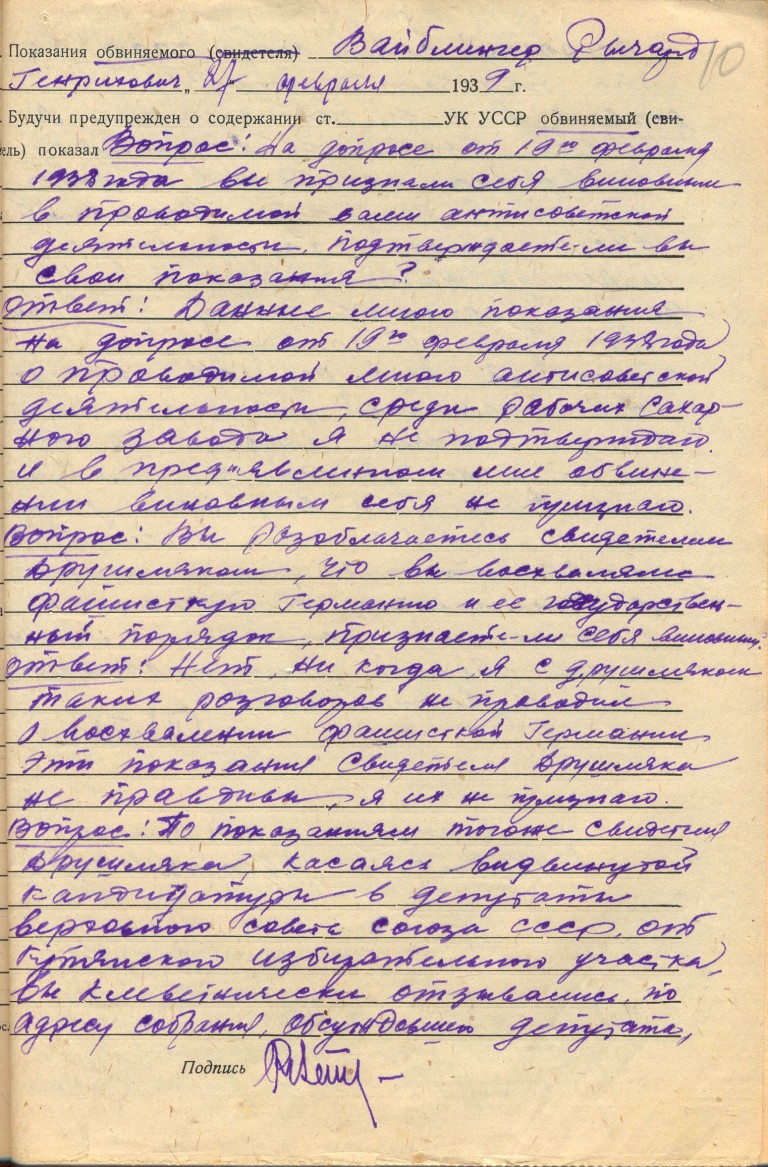 10
Показания обвиняемого (свидетеля) Вайблингер Рычард
Генрихович „ 21 февраля 1939 г.
Будучи предупрежден о содержании ст. УК УССР обвиняемый (сви-
тель) показал Вопрос: На допросе от 19го февраля
1938 года вы признали себя виновным
в проводимой вами антисоветской
деятельности, подтверждаете-ли вы
свои показания?
Ответ: Данные мною показания
на допросе от 19го февраля 1938 года
о проводимой мною антисоветской
деятельности, среди рабочих сахар-
ного завода я не подтверждаю.
и в предъявленном мне обвине-
нии виновным себя не признаю.
Вопрос: Вы разоблачаетесь свидетелем
Друшляком, что вы восхваляли
фашисткую Германию и ее государствен-
ный порядок, признаете-ли себя виновным?
Ответ: Нет, ни когда я с Друшляком
таких разговоров не проводил
о восхвалении фашисткой Германии
эти показания свидетеля Друшляка
не правдивы, я их не признаю.
Вопрос: По показаниям того же свидетеля
Друшляка, касаясь выдвинутой
кандидатуры в депутаты
верховного совета союза СССР, от
избирательного участка,
вы клеветнически отзывались, по
адресу собрания, обсуждавшем депутата,
Подпись